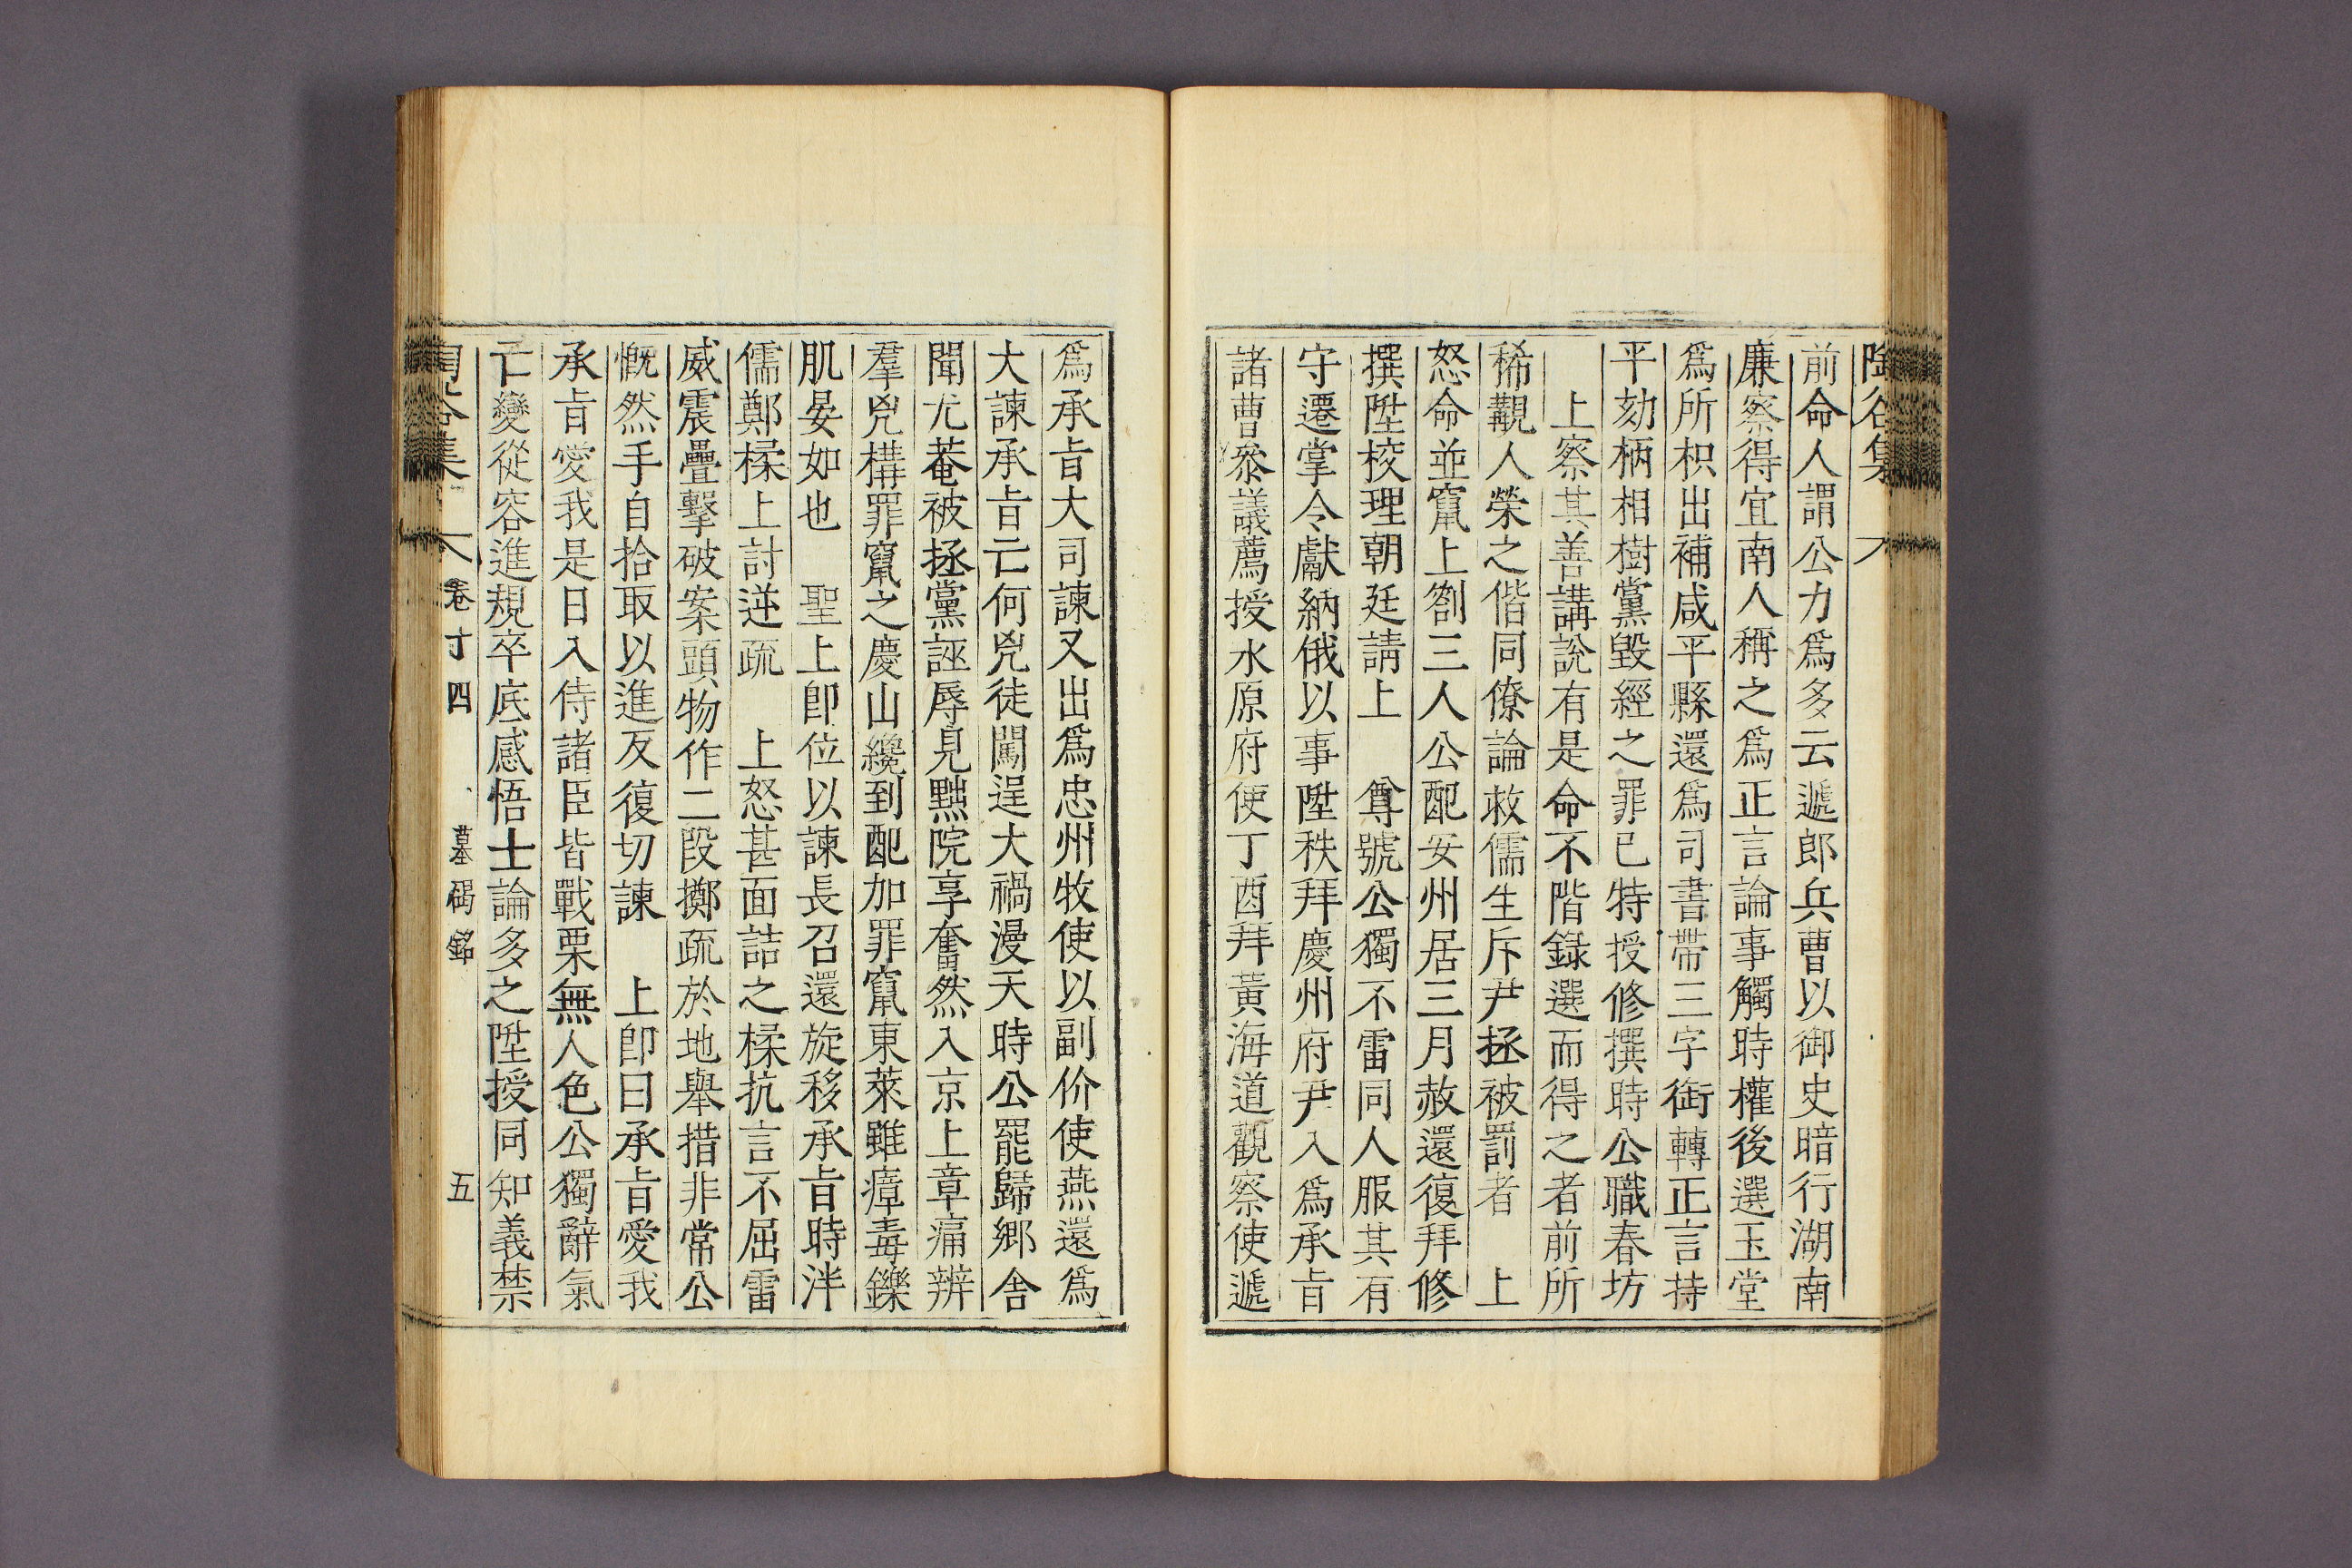 陶谷集
前命人謂公力爲多云遞郎兵曹以御史暗行湖南
廉察得宜南人稱之爲正言論事觸時權後選玉堂
爲所枳出補咸平縣還爲司書帶三字銜轉正言持
平劾柄相樹黨毀經之罪已特授修撰時公職春坊
上察其善講說有是命不階錄選而得之者前所
稀覯人榮之偕同僚論救儒生斥尹拯被罰者　上
怒命並竄上劄三人公配安州居三月赦還復拜修
撰陞校理朝廷請上　尊號公獨不雷同人服其有
守遷掌令獻納俄以事陞秩拜慶州府尹入爲承旨
諸曹叅議薦授水原府使丁酉拜黃海道觀察使遞
爲承旨大司諫又出爲忠州牧使以副价使燕還爲
大諫承旨亡何兇徒闖逞大禍漫天時公罷歸鄕舍
聞尤菴被拯黨誣辱見黜院享奮然入京上章痛辨
羣兇構罪竄之慶山纔到配加罪竄東萊雖瘴毒鑠
肌晏如也　聖上卽位以諫長召還旋移承旨時泮
儒鄭楺上討逆疏　上怒甚面詰之楺抗言不屈雷
威震疊擊破案頭物作二段擲疏於地舉措非常公
慨然手自拾取以進反復切諫　上卽曰承旨愛我
承旨愛我是日入侍諸臣皆戰栗無人色公獨辭氣
亡變從容進規卒底感悟士論多之陞授同知義禁
陶谷集　卷十四　墓碣銘　五